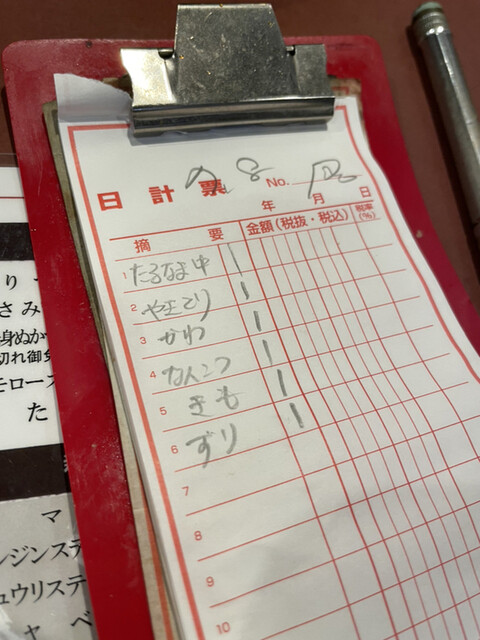 日計票
No.
年 月 日
摘要 金額(税抜・税込) 税率(%)
1 たるなま中 1
2 やきとり 1
3 かわ 1
4 なんこつ 1
5 きも 1
6 ずり 1
7
8
9
10
り・
さみ
身ぬか
切れ御免
モロース
た
マ
ンジンステ
ュウリステ
ャベ